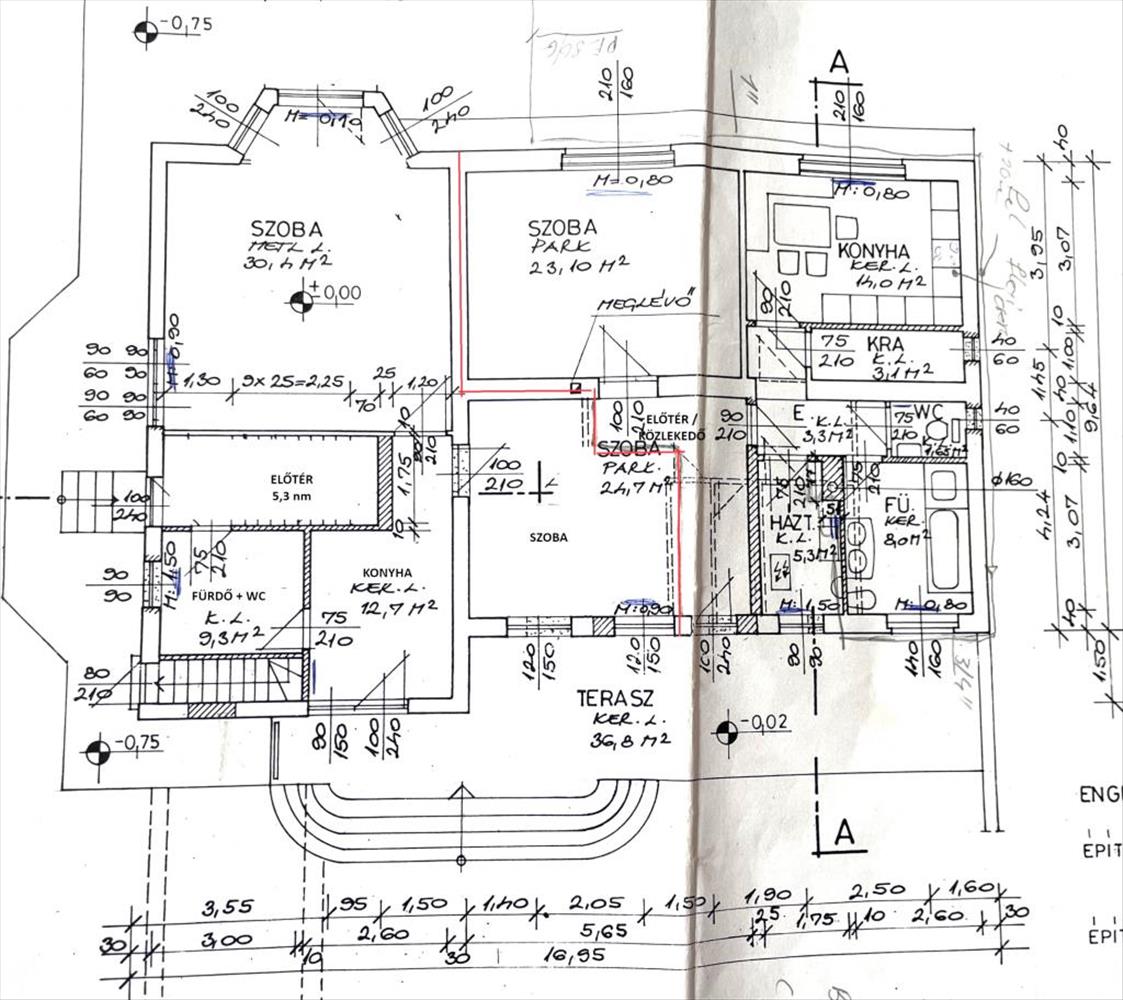 -0,75
100
240
M=-0,10
100
240
210
160
M=0,80
A
210
160
M:0,80
SZOBA
METL L.
30,4 M²
±0,00
SZOBA
PARK
23,10 M²
MEGLÉVŐ
KONYHA
KER. L.
14,0 M²
90
210
75
210
KRA
K.L.
3,1 M²
40
60
90 90
60 90
90 90
60 90
1,30
9x25=2,25
25
70
1,20
100
210
ELŐTÉR /
KÖZLEKEDŐ
90
210
E.
K.L.
3,3 M²
75
210
WC
K.L.
1,65 M²
40
60
SZOBA
PARK.
24,7 M²
SZOBA
ELŐTÉR
5,3 nm
1,75
10
100
210
100
240
75
210
HAZT.
K.L.
5,3 M²
M:1,50
FÜ.
KER.
8,0 M²
M:0,80
ϕ160
90
90
M:1,50
75
210
FÜRDŐ + WC
K.L.
9,3 M²
75
210
KONYHA
KER. L.
12,7 M²
M:0,90
80
210
90
150
100
240
120
150
120
150
100
240
90
90
140
160
TERASZ
KER. L.
36,8 M²
-0,02
-0,75
A
3,95
1,45
4,24
40
3,07
10
1,00
40
1,10
10
3,07
40
9,64
1,50
3/4"
1"
ENG
ÉPIT
ÉPIT
3,55
95
1,50
1,40
2,05
1,50
1,90
2,50
1,60
30
3,00
10
2,60
30
5,65
25
1,75
10
2,60
30
16,95